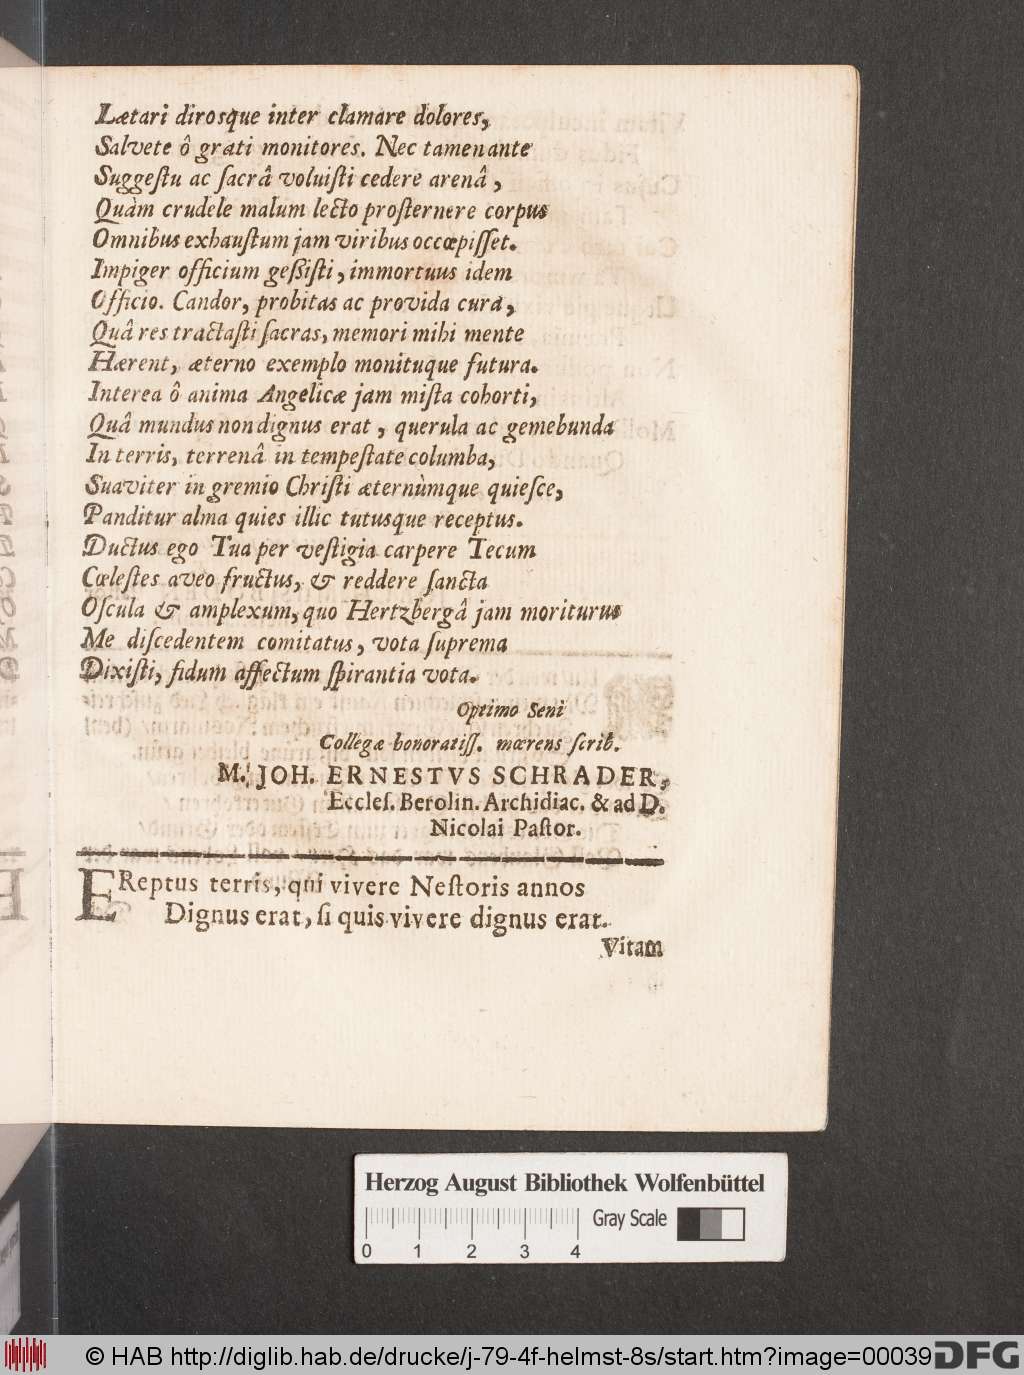 Lætari dirosque inter clamare dolores,
Salvete ô grati monitores. Nec tamen ante
Suggeſtu ac ſacrâ voluiſti cedere arenâ,
Quàm crudele malum lecto proſternere corpus
Omnibus exhauſtum jam viribus occœpiſſet.
Impiger officium geſsiſti, immortuus idem
Officio. Candor, probitas ac provida cura,
Quâ res tractaſti ſacras, memori mihi mente
Hærent, æterno exemplo monituque futura.
Interea ô anima Angelicæ jam miſta cohorti,
Quâ mundus non dignus erat, querula ac gemebunda
In terris, terrenâ in tempeſtate columba,
Suaviter in gremio Chriſti æternùmque quieſce,
Panditur alma quies illic tutusque receptus.
Ductus ego Tua per veſtigia carpere Tecum
Cœleſtes aveo fructus, & reddere ſancta
Oſcula & amplexum, quo Hertzbergâ jam moriturus
Me diſcedentem comitatus, vota ſuprema
Dixiſti, fidum affectum ſpirantia vota.
Optimo Seni
Collegæ honoratiſſ. mœrens ſcrib.
M. JOH. ERNESTVS SCHRADER,
Eccleſ. Berolin. Archidiac. & ad D.
Nicolai Paſtor.
EReptus terris, qui vivere Neſtoris annos
Dignus erat, ſi quis vivere dignus erat.
Vitam
Herzog August Bibliothek Wolfenbüttel
Gray Scale
0 1 2 3 4
© HAB http://diglib.hab.de/drucke/j-79-4f-helmst-8s/start.htm?image=00039
DFG